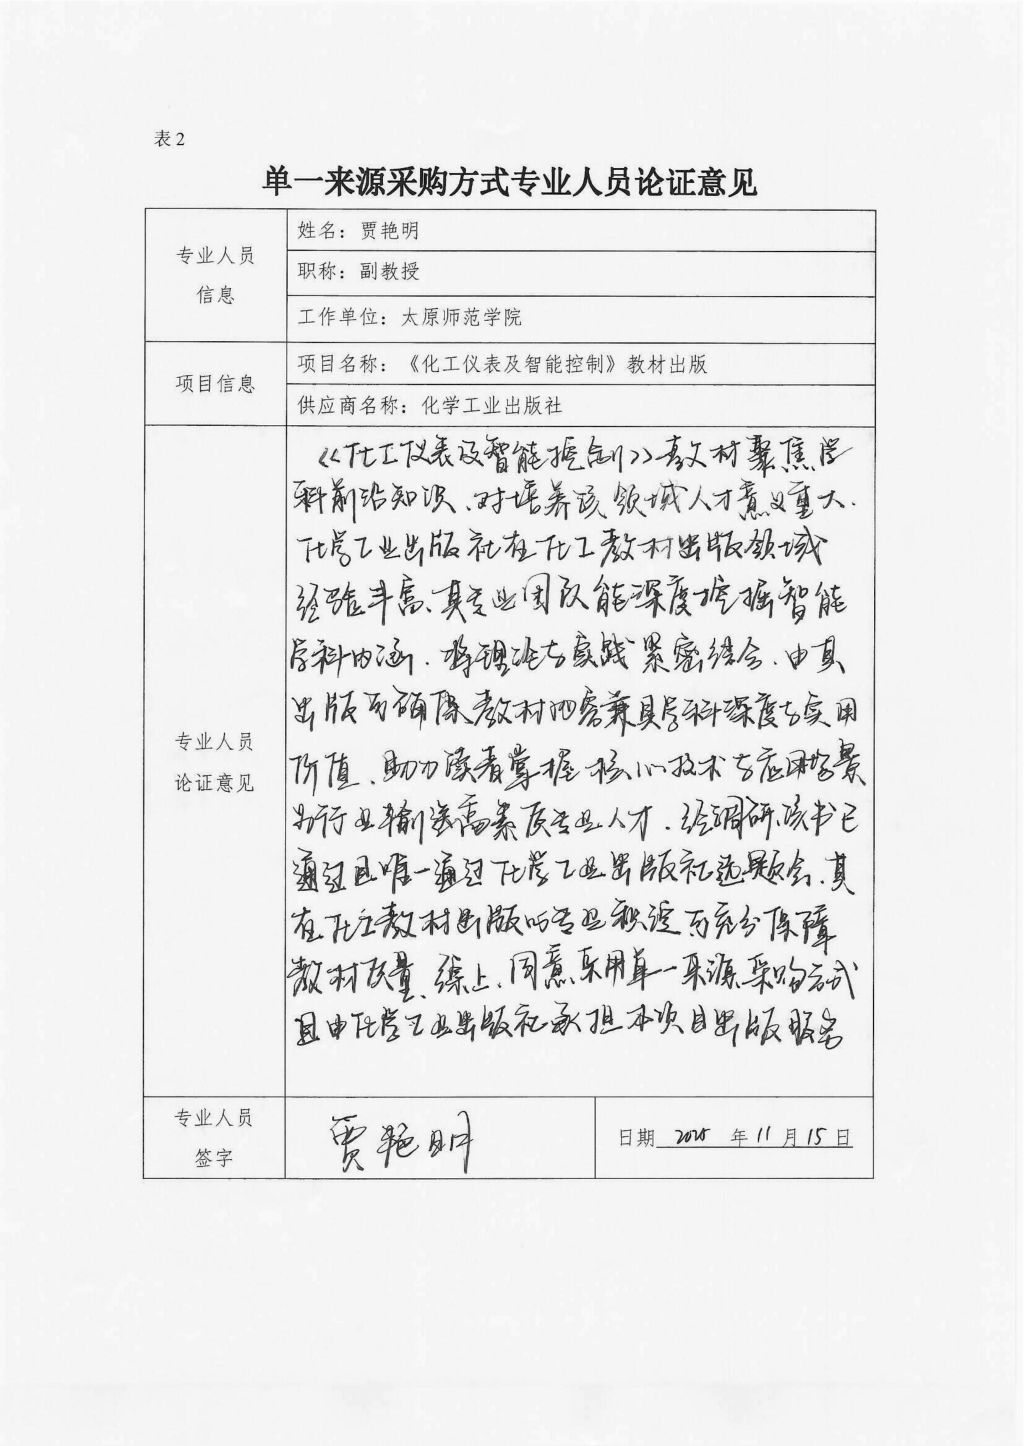 表2
单一来源采购方式专业人员论证意见
专业人员
信息
姓名：贾艳明
职称：副教授
工作单位：太原师范学院
项目信息
项目名称：《化工仪表及智能控制》教材出版
供应商名称：化学工业出版社
专业人员
论证意见
《化工仪表及智能控制》教材聚焦学
科前沿知识、对培养该领域人才意义重大.
化学工业出版社在化工教材出版领域
经验丰富、其专业团队能深度挖掘智能
学科内涵.将理论与实践紧密结合.由其
出版可确保教材内容兼具学科深度与实用
价值、助力读者掌握核心技术与应用场景
为行业输送高素质专业人才.经调研.该书已
通过且唯一通过化学工业出版社选题会.其
在化工教材出版的专业积淀可充分保障
教材质量、综上、同意采用单一来源采购方式
且由化学工业出版社承担本项目出版服务
专业人员
签字
贾艳明
日期 2025 年 11 月 15 日